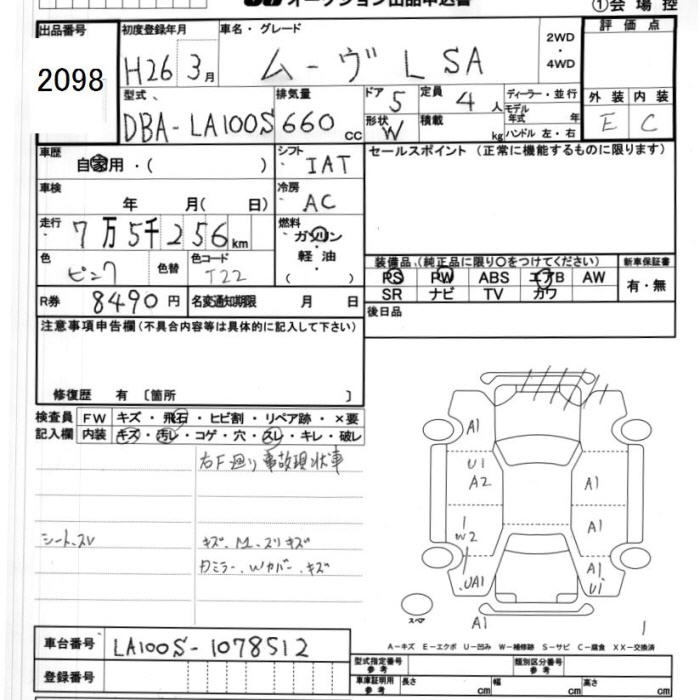 オークション出品申込書
①会場控
出品番号
2098
初度登録年月
H26 3月
車名・グレード
ムーヴ L SA
2WD・4WD
評価点
外装 内装
E C
型式
DBA-LA100S
排気量
660 cc
ドア 5
形状 W
定員 4人
積載 kg
ディーラー・並行
モデル年式 年
ハンドル 左・右
車歴
自家用・( )
シフト
IAT
セールスポイント (正常に機能するものに限ります)
車検
年 月( 日)
冷房
AC
走行
7万5千256km
燃料
ガソリン
軽油
( )
色
ピンク
色替
色コード
T22
装備品 (純正品に限り○をつけてください)
新車保証書
PS PW ABS エアB AW
SR ナビ TV カワ
有・無
R券
8490円
名変通知期限 月 日
後日品
注意事項申告欄 (不具合内容等は具体的に記入して下さい)
修復歴 有 〔箇所 〕
検査員記入欄
FW キズ・飛石・ヒビ割・リペア跡・×要
内装 キズ・汚レ・コゲ・穴・スレ・キレ・破レ
右F廻り事故現状車
シート、スレ
キズ、M、スリキズ
カミラー、Wカバー、キズ
A1
U1
A2
A1
W2
A1
UA1
A1
U1
スペア
A1
1
A-キズ E-エクボ U-凹み W-補修跡 S-サビ C-腐食 XX-交換済
車台番号
LA100S-1078512
登録番号
型式指定番号 参考
類別区分番号 参考
車庫証明用 参考
長さ cm 幅 cm 高さ cm